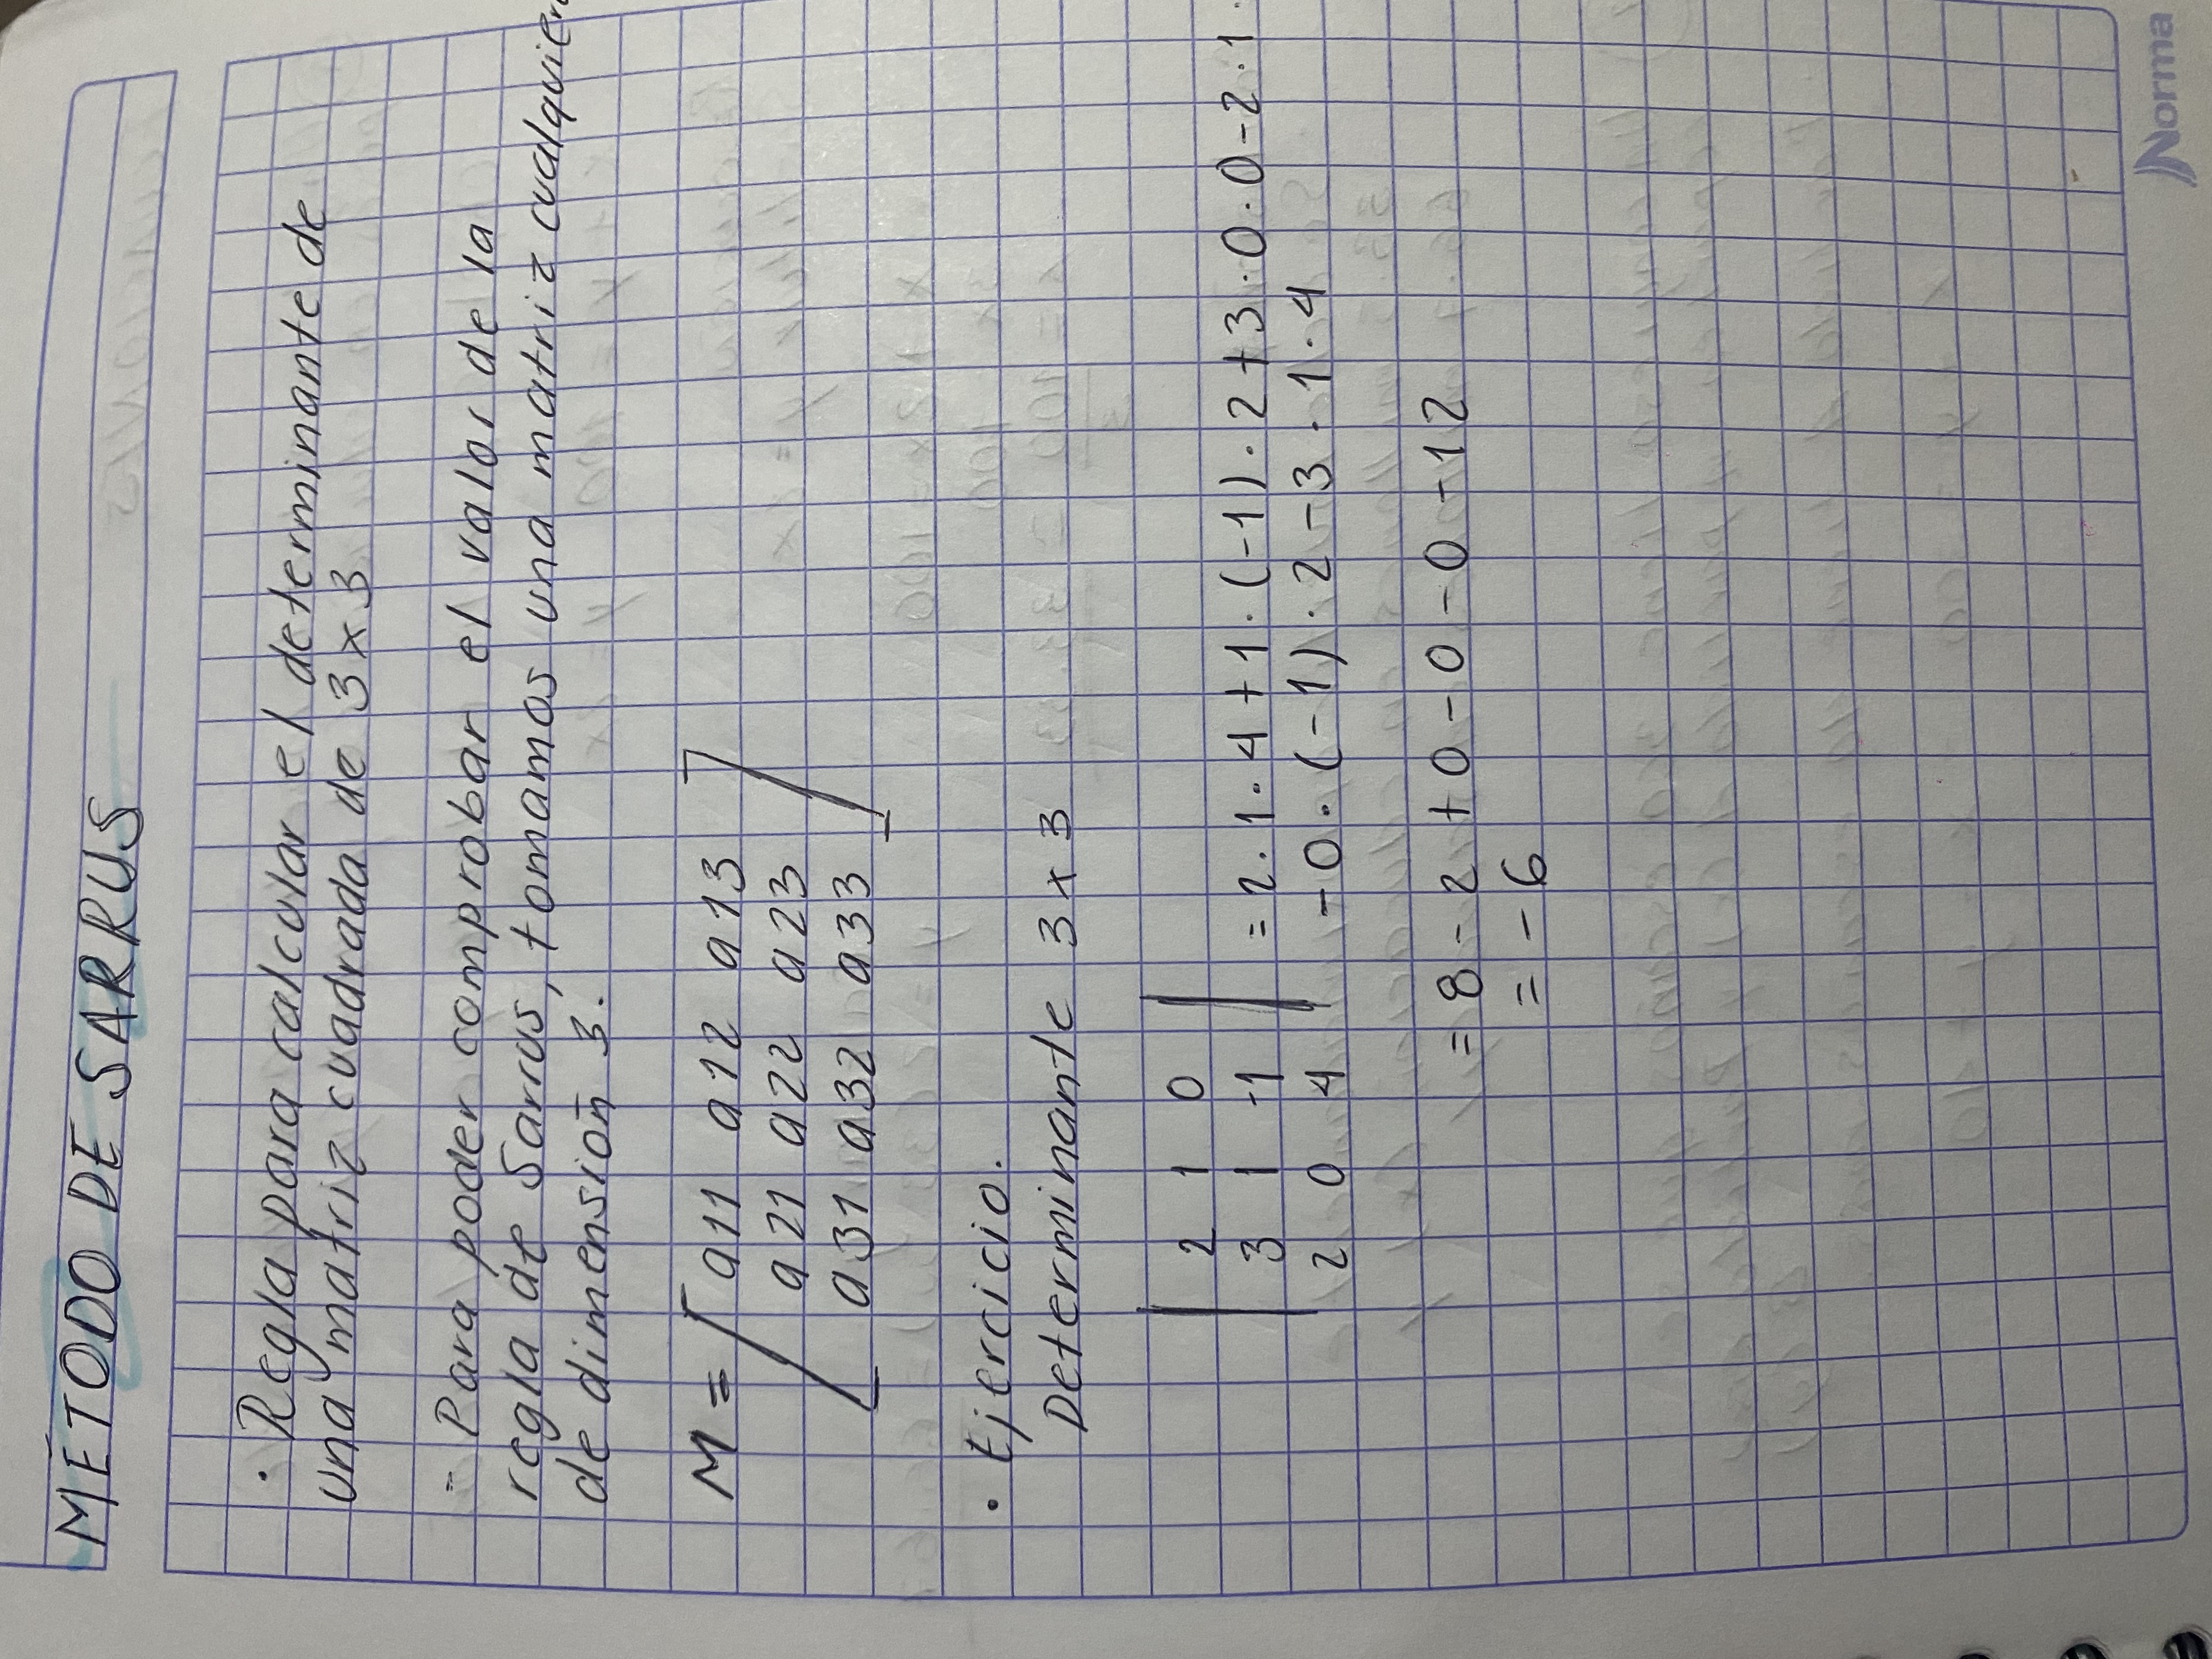 MÉTODO DE SARRUS
· Regla para calcular el determinante de
una matriz cuadrada de 3 x 3
- Para poder comprobar el valor de la
regla de Sarrus, tomamos una matriz
de dimensión 3.
M = [ a11 a12 a13 ]
a21 a22 a23
a31 a32 a33
· Ejercicio.
Determinante 3 x 3
2 1 0
3 1 -1 = 2 · 1 · 4 + 1 · (-1) · 2 + 3 · 0 · 0 - 2 · 1 ·
2 0 4 - 0 · (-1) · 2 - 3 · 1 · 4
= 8 - 2 + 0 - 0 - 0 - 12
= - 6
Norma